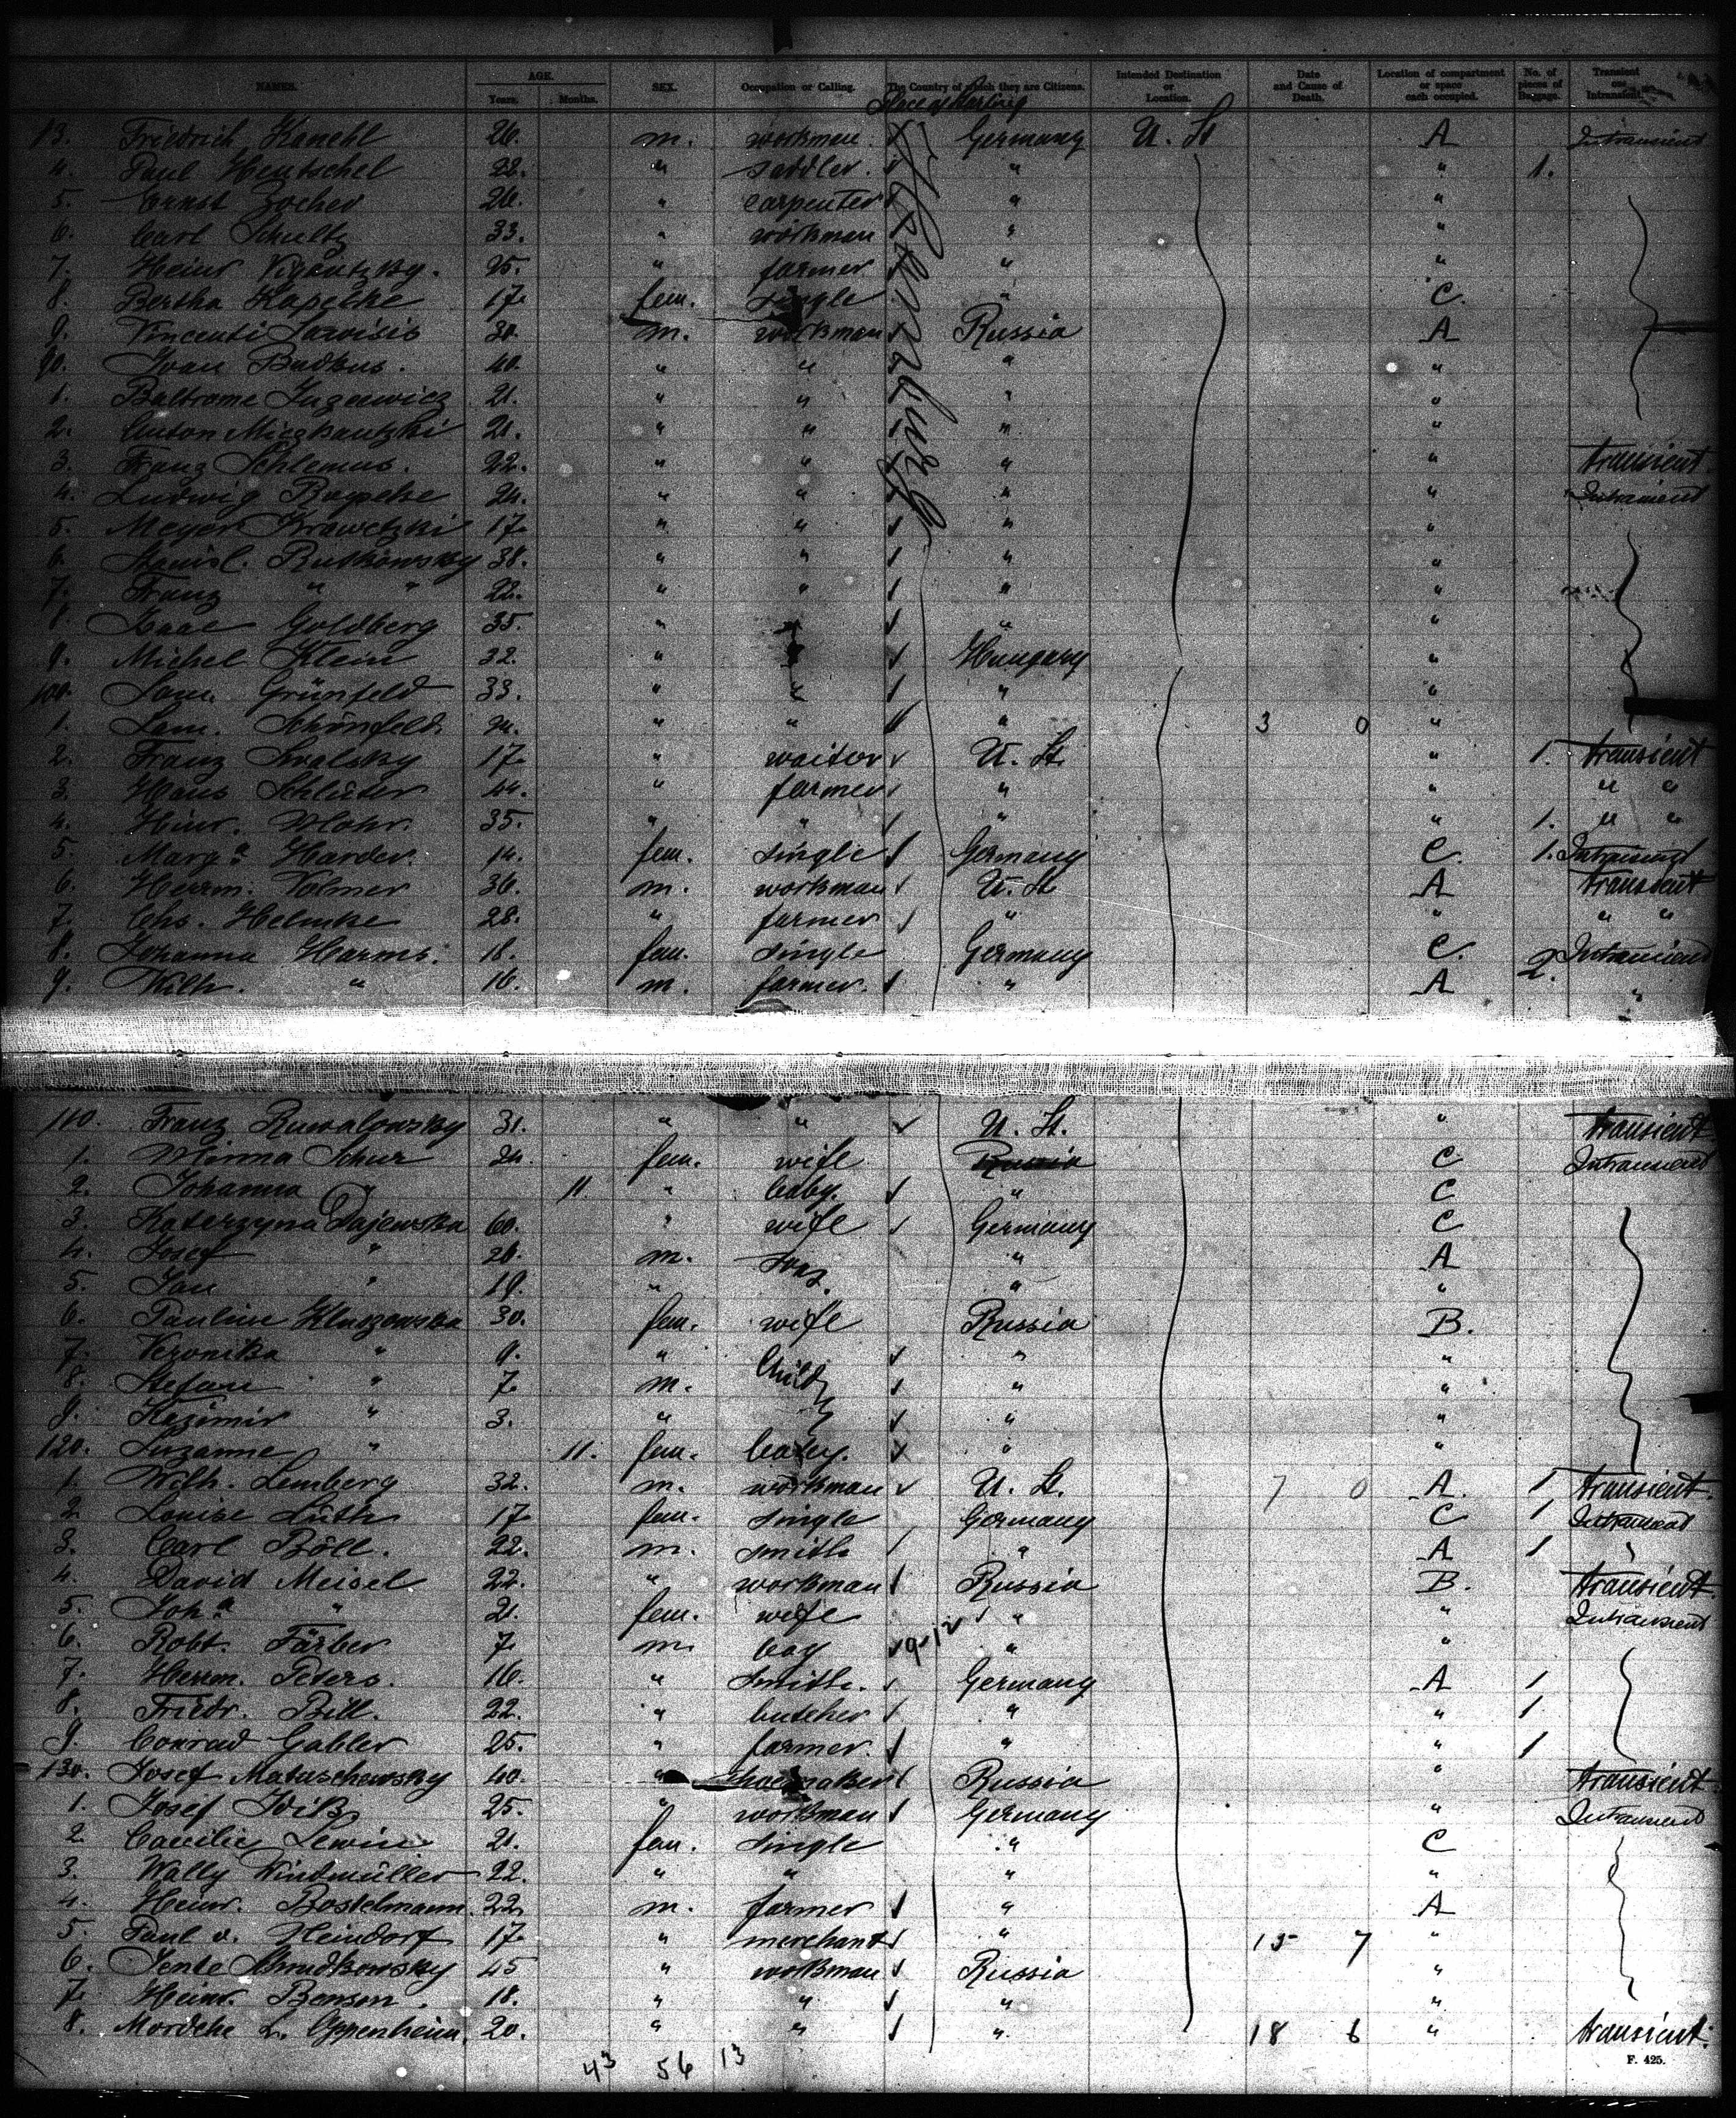 NAMES. AGE. Years. Months. SEX. Occupation or Calling. The Country of which they are Citizens. Intended Destination or Location. Date and Cause of Death. Location of compartment or space each occupied. No. of pieces of Baggage. Transient or Intransient
Place of Starting
Hamburg
13. Friedrich Kanehl 26. m. workman Germany U. St A Intransient
4. Paul Hentschel 22. " saddler. " " 1.
5. Ernst Zocher 26. " carpenter " "
6. Carl Schultz 33. " workman " "
7. Heinr 25. " farmer " "
8. Bertha Kapelke 17. fem. single " C.
9. Vincenti 30. m. workman Russia A
90. Ivan Budkus. 40. " " " "
1. Baltrome 21. " " " "
2. Anton 21. " " " "
3. Franz Schlemus. 22. " " " " transient
4. Ludwig 24. " " " " Intransient
5. Meyer Krawetzki 17. " " " "
6. Stanisl. Rutkowsky 38. " " " "
7. Franz " " 22. " " " "
8. Isaac Goldberg 35. " " " "
9. Michel Klein 32. " " Hungary "
100. Sam. Grünfeld 33. " " " "
1. Sam. Schönfeld. 24. " " " 3 0 "
2. Franz 17. " waiter U. St. " 1. transient
3. Hans Schlüter 44. " farmer " " " "
4. Hinr. Mohr. 35. " " " " 1. " "
5. Marg.a Harder. 14. fem. single Germany C. 1. Intransient
6. Herrm. Volmer 36. m. workman U. St A transient
7. Chs. Helmke 28. " farmer " " " "
8. Johanna Harms. 18. fem. single Germany C. 2. Intransient
9. Wilh. " 16. m. farmer. " A "
110. Franz Ruwalowsky 31. " " U. St. " transient.
1. Minna Schur 24. fem. wife Russia C Intransient
2. Johanna " 11. " baby. " C
3. Katerzyna Dajewska 60. " wife Germany C
4. Josef " 26. m. sons " A
5. Jan " 19. " " "
6. Pauline 30. fem. wife Russia B.
7. Veronika " 9. " Child " "
8. Stefan " 7. m. " "
9. Kazimir " 3. " " "
120. Suzanne " 11. fem. baby. " "
1. Wilh. Lemberg 32. m. workman U. St. 7 0 A. 1 transient.
2. Louise Lüth 17. fem. single Germany C 1 Intransient
3. Carl Böll. 22. m. smith " A 1 "
4. David Meisel 22. " workman Russia B. transient.
5. Joh.a " 21. fem. wife " " Intransient
6. Robt. Färber 7. m. boy 9-12 " "
7. Herrm. Peters. 16. " smith. Germany A 1
8. Friedr. Bill. 22. " butcher " " 1.
9. Conrad Gabler 25. " farmer. " " 1
130. Josef Matuschewsky 40. " shoemaker Russia " transient.
1. Josef 25. " workman Germany " Intransient
2. Caecilie Lewin 21. fem. single " C
3. Wally Windmüller 22. " " " "
4. Heinr. Bostelmann. 22. m. farmer " A
5. Paul v. Heindorf 17. " merchant " 15 7 "
6. 45 " workman Russia "
7. Heinr. Benson. 18. " " " "
8. Mordche L. Oppenheim. 20. " " " 18 6 " transient.
43 56 13
F. 425.